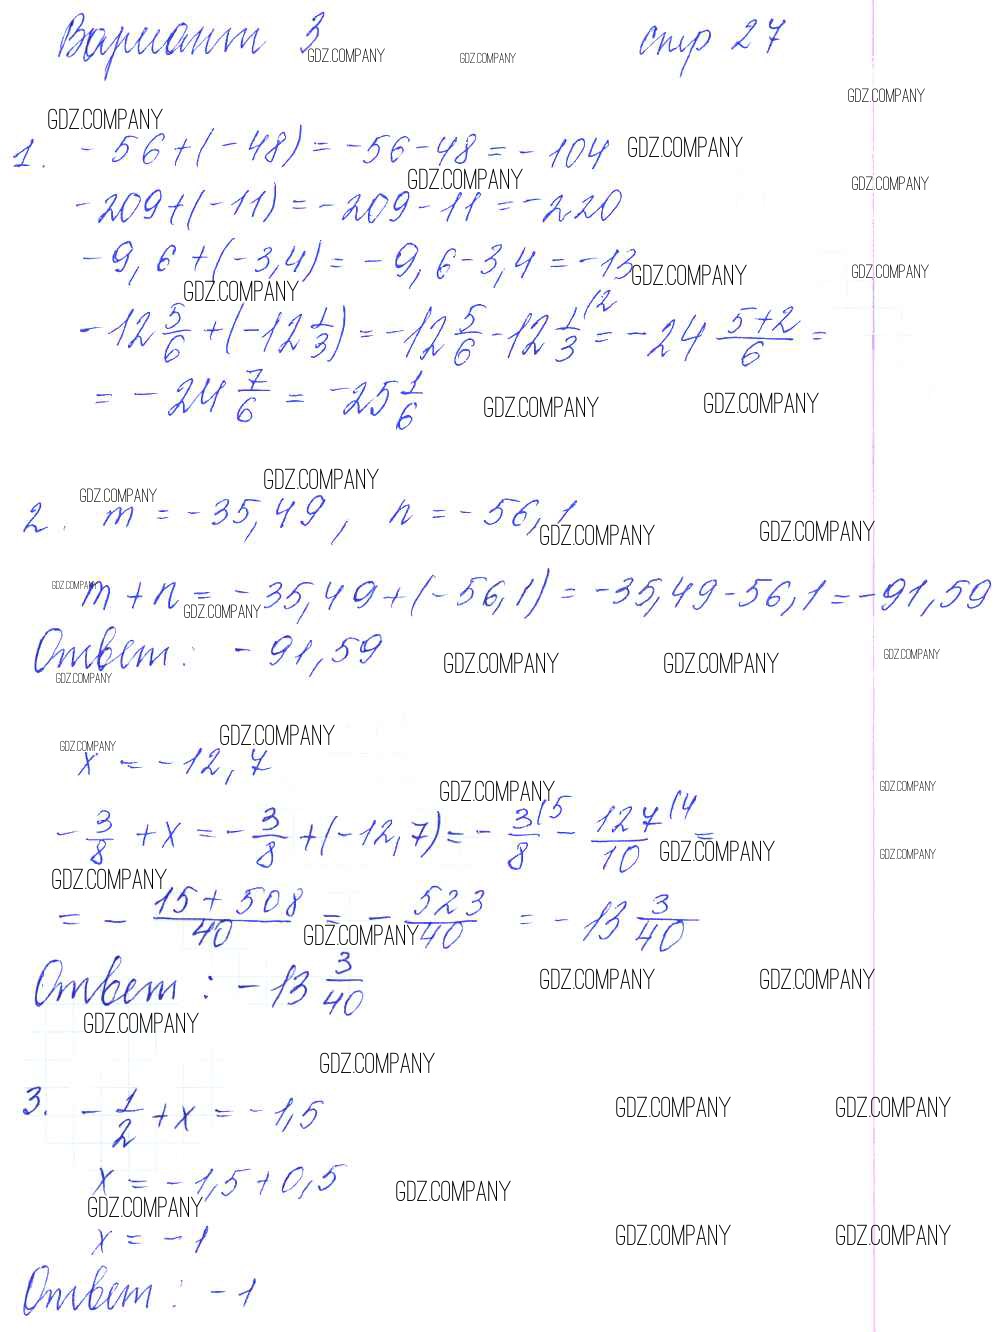 Вариант 3 стр 27
GDZ.COMPANY GDZ.COMPANY
GDZ.COMPANY
GDZ.COMPANY
1. -56+(-48)=-56-48=-104 GDZ.COMPANY
GDZ.COMPANY GDZ.COMPANY
-209+(-11)=-209-11=-220
-9,6+(-3,4)=-9,6-3,4=-13 GDZ.COMPANY GDZ.COMPANY
GDZ.COMPANY
-12 5/6+(-12 1/3)=-12 5/6-12 1/3(2=-24 5+2/6=
=-24 7/6=-25 1/6 GDZ.COMPANY GDZ.COMPANY
GDZ.COMPANY
GDZ.COMPANY
2. m=-35,49, n=-56,1
GDZ.COMPANY GDZ.COMPANY
GDZ.COMPANY
m+n=-35,49+(-56,1)=-35,49-56,1=-91,59
GDZ.COMPANY
Ответ: -91,59
GDZ.COMPANY GDZ.COMPANY GDZ.COMPANY
GDZ.COMPANY
GDZ.COMPANY
GDZ.COMPANY
x=-12,7
GDZ.COMPANY GDZ.COMPANY
-3/8+x=-3/8+(-12,7)=-3/8(5-127/10(4=
GDZ.COMPANY GDZ.COMPANY
GDZ.COMPANY
=-15+508/40=-523/40=-13 3/40
GDZ.COMPANY
Ответ: -13 3/40
GDZ.COMPANY GDZ.COMPANY
GDZ.COMPANY
GDZ.COMPANY
3. -1/2+x=-1,5
GDZ.COMPANY GDZ.COMPANY
x=-1,5+0,5
GDZ.COMPANY
GDZ.COMPANY
x=-1
GDZ.COMPANY GDZ.COMPANY
Ответ: -1